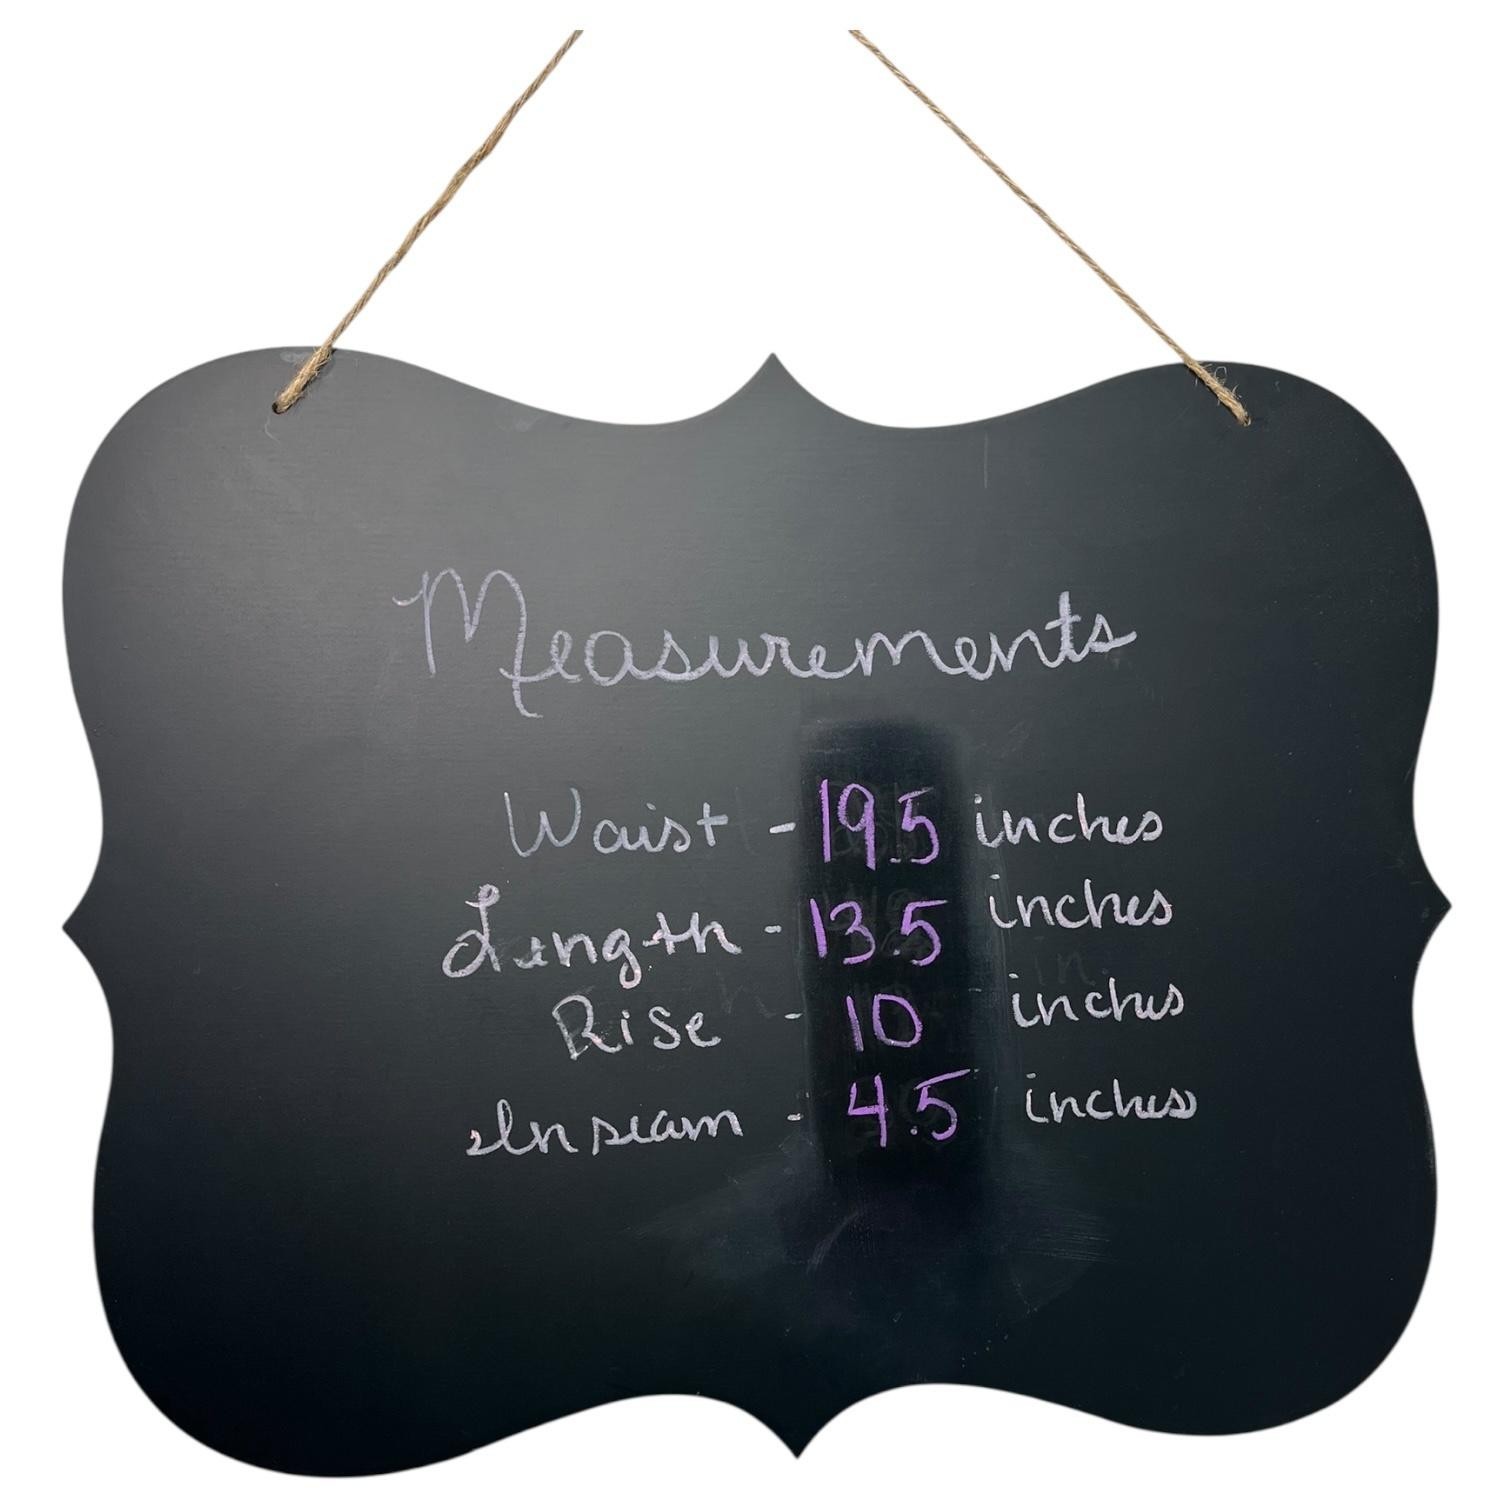 Measurements
Waist - 19.5 inches
Length - 13.5 inches
Rise - 10 inches
Inseam - 4.5 inches